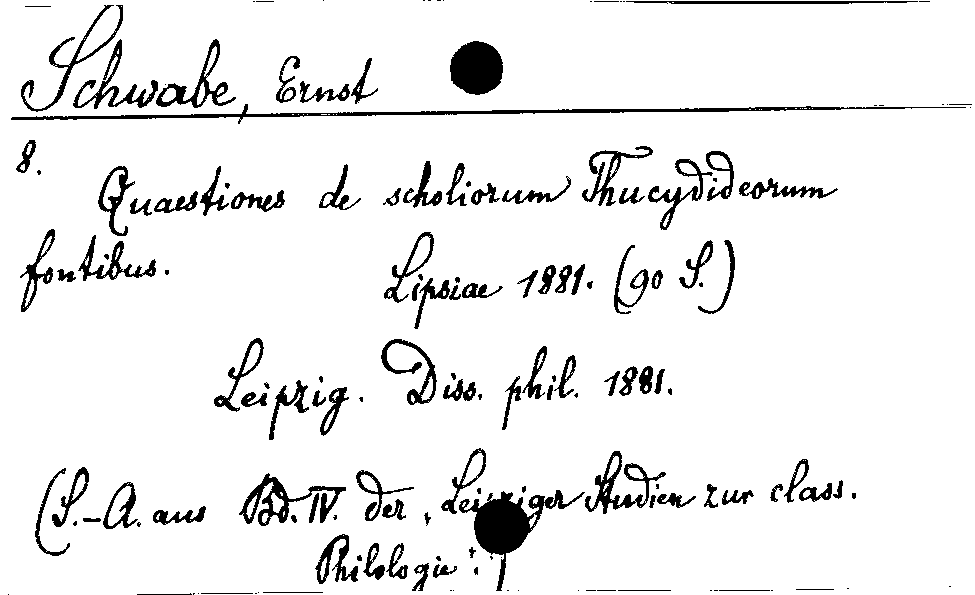 Schwabe, Ernst
8.
Quaestiones de scholiorum Thucydideorum
fontibus.
Lipsiae 1881. (90 S.)
Leipzig. Diss. phil. 1881.
(S.-A. aus Bd. IV. der „Leipziger Studien zur class.
Philologie“.)